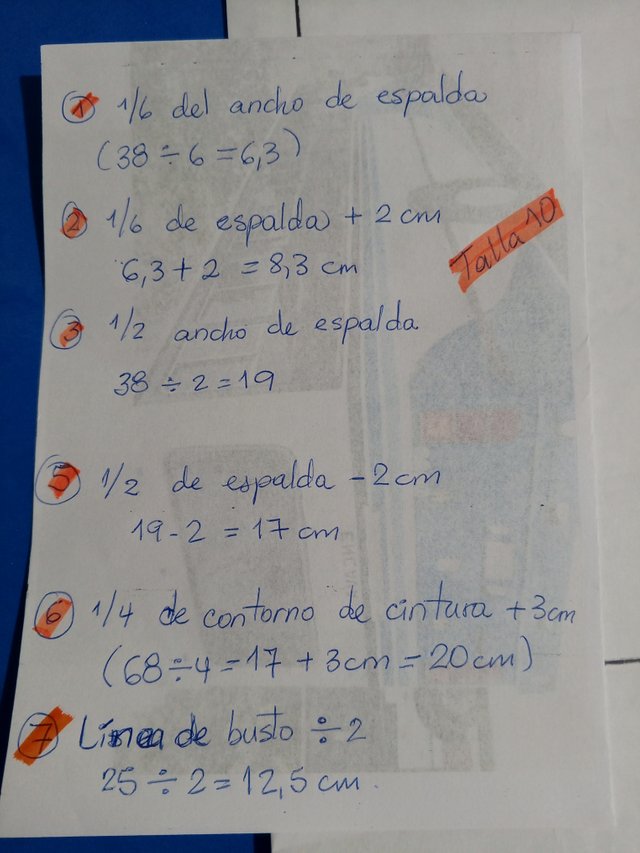 ① 1/6 del ancho de espalda
(38 ÷ 6 = 6,3)
② 1/6 de espalda + 2 cm
6,3 + 2 = 8,3 cm
Talla 10
③ 1/2 ancho de espalda
38 ÷ 2 = 19
⑤ 1/2 de espalda - 2 cm
19 - 2 = 17 cm
⑥ 1/4 de contorno de cintura + 3cm
(68 ÷ 4 = 17 + 3cm = 20cm)
⑦ Línea de busto ÷ 2
25 ÷ 2 = 12,5 cm.